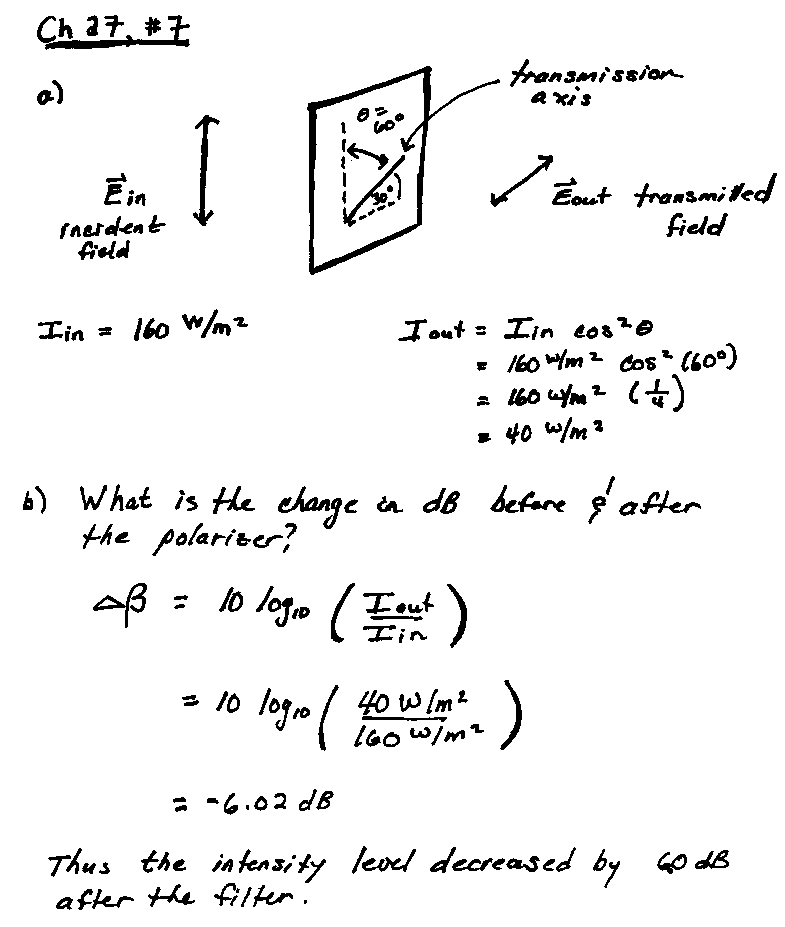 Ch 27, #7
a)
transmission
axis
θ =
60°
30°
E⃗in
incident
field
E⃗out transmitted
field
Iin = 160 W/m²
Iout = Iin cos²θ
= 160 W/m² cos² (60°)
= 160 W/m² (1/4)
= 40 W/m²
b) What is the change in dB before & after
the polarizer?
Δβ = 10 log₁₀ (Iout/Iin)
= 10 log₁₀ (40 W/m²/160 W/m²)
= -6.02 dB
Thus the intensity level decreased by 6.0 dB
after the filter.